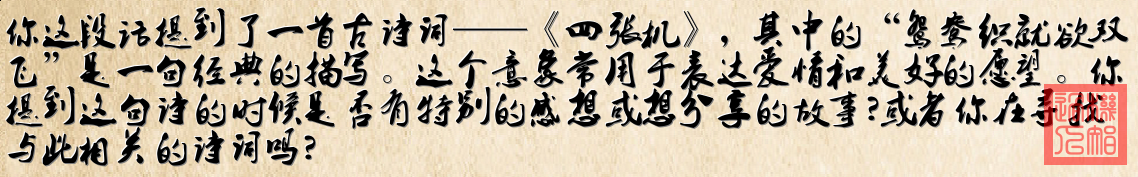 你这段话提到了一首古诗词——《四张机》，其中的“鸳鸯织就欲双
飞”是一句经典的描写。这个意象常用于表达爱情和美好的愿望。你
提到这句诗的时候是否有特别的感想或想分享的故事?或者你在寻找
与此相关的诗词吗?